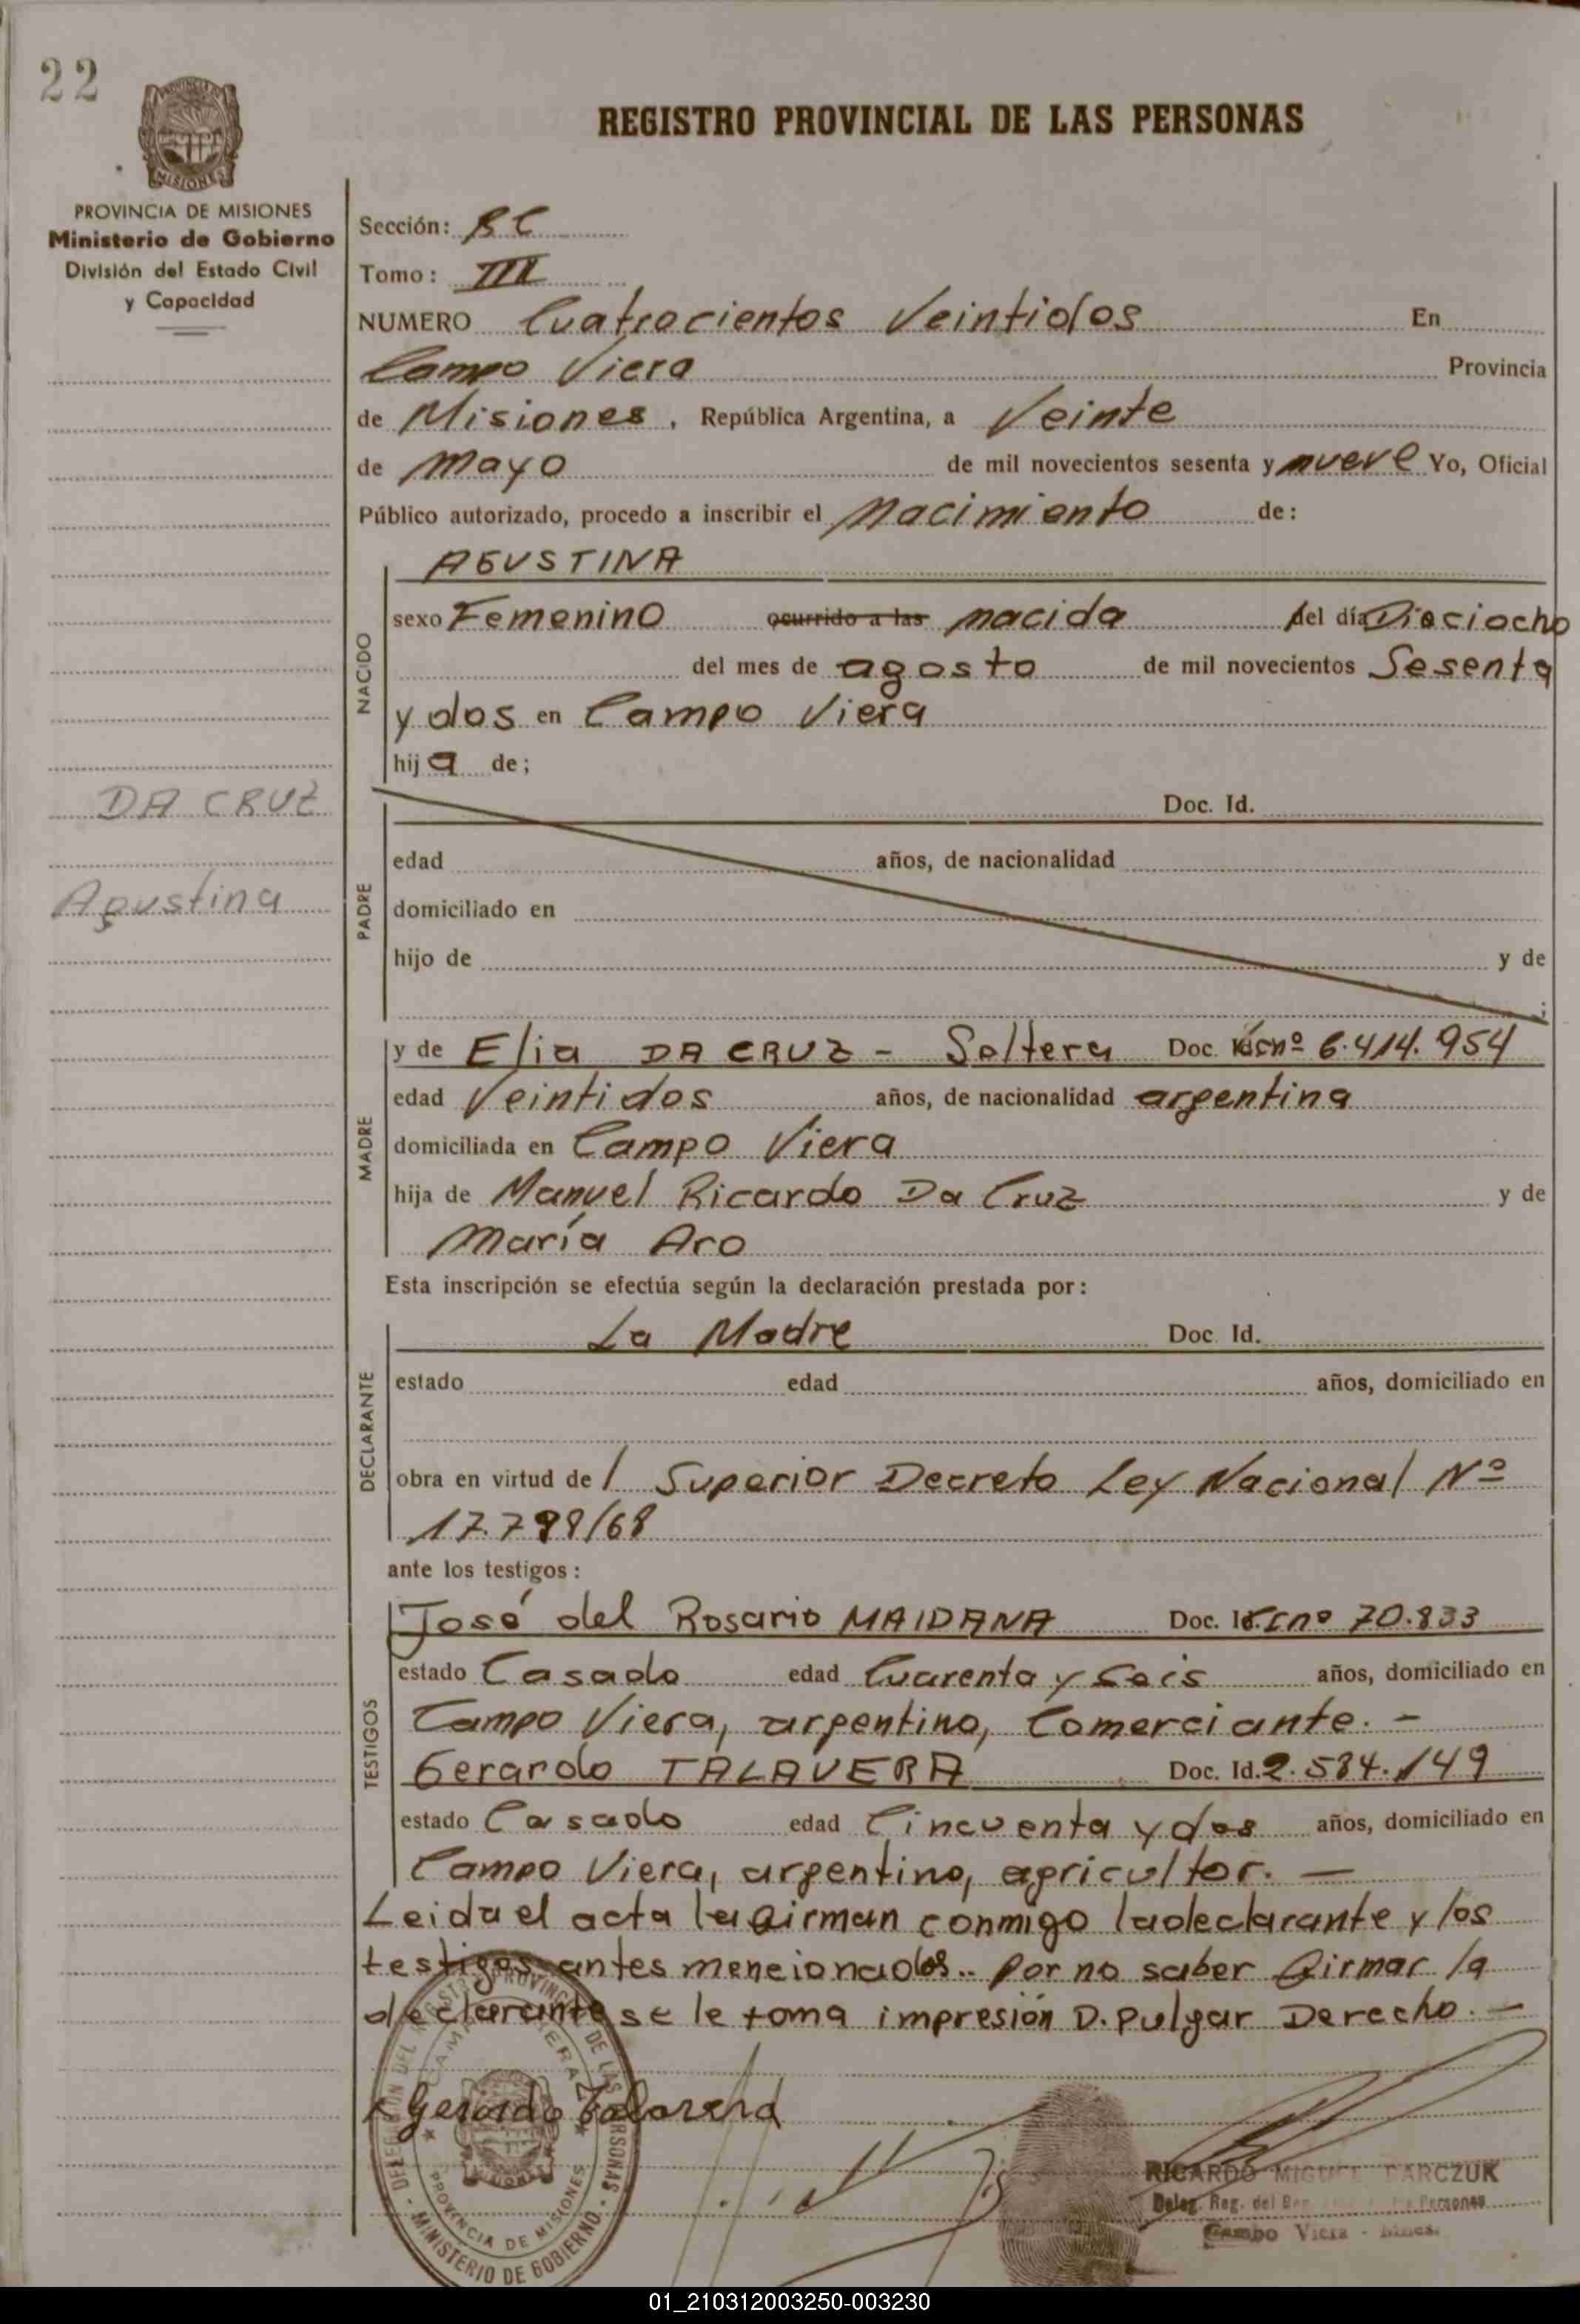 22
REGISTRO PROVINCIAL DE LAS PERSONAS
MISIONES
PROVINCIA DE MISIONES
Ministerio de Gobierno
División del Estado Civil
y Capacidad
Sección: BC
Tomo: III
NUMERO Cuatrocientos Veintidos En
Campo Viera Provincia
de Misiones, República Argentina, a Veinte
de Mayo de mil novecientos sesenta y nueve Yo, Oficial
Público autorizado, procedo a inscribir el Nacimiento de:
NACIDO
AGUSTINA
sexo Femenino ocurrido a las nacida del día Dieciocho
del mes de agosto de mil novecientos Sesenta
y dos en Campo Viera
hija de;
DA CRUZ
Agustina
PADRE
Doc. Id.
edad años, de nacionalidad
domiciliado en
hijo de y de
;
MADRE
y de Elia DA CRUZ - Soltera Doc. nº 6.414.954
edad Veintidos años, de nacionalidad argentina
domiciliada en Campo Viera
hija de Manuel Ricardo Da Cruz y de
María Aro
Esta inscripción se efectúa según la declaración prestada por:
DECLARANTE
La Madre Doc. Id.
estado edad años, domiciliado en
obra en virtud del Superior Decreto Ley Nacional Nº
17.799/68
ante los testigos:
TESTIGOS
José del Rosario MAIDANA Doc. nº 70.833
estado Casado edad Cuarenta y Seis años, domiciliado en
Campo Viera, argentino, Comerciante. -
Gerardo TALAVERA Doc. Id. 2.584.149
estado Casado edad Cincuenta y dos años, domiciliado en
Campo Viera, argentino, agricultor. —
Leida el acta la firman conmigo la declarante y los
testigos antes mencionados.. Por no saber firmar la
declarante se le toma impresión D. Pulgar Derecho. —
Gerardo Talavera
DELEGACION DEL REGISTRO PROVINCIAL DE LAS PERSONAS - MINISTERIO DE GOBIERNO -
CAMPO VIERA
PROVINCIA DE MISIONES
RICARDO MIGUEL DARCZUK
Deleg. Reg. del Personas
Campo Viera - Mnes.
01_210312003250-003230